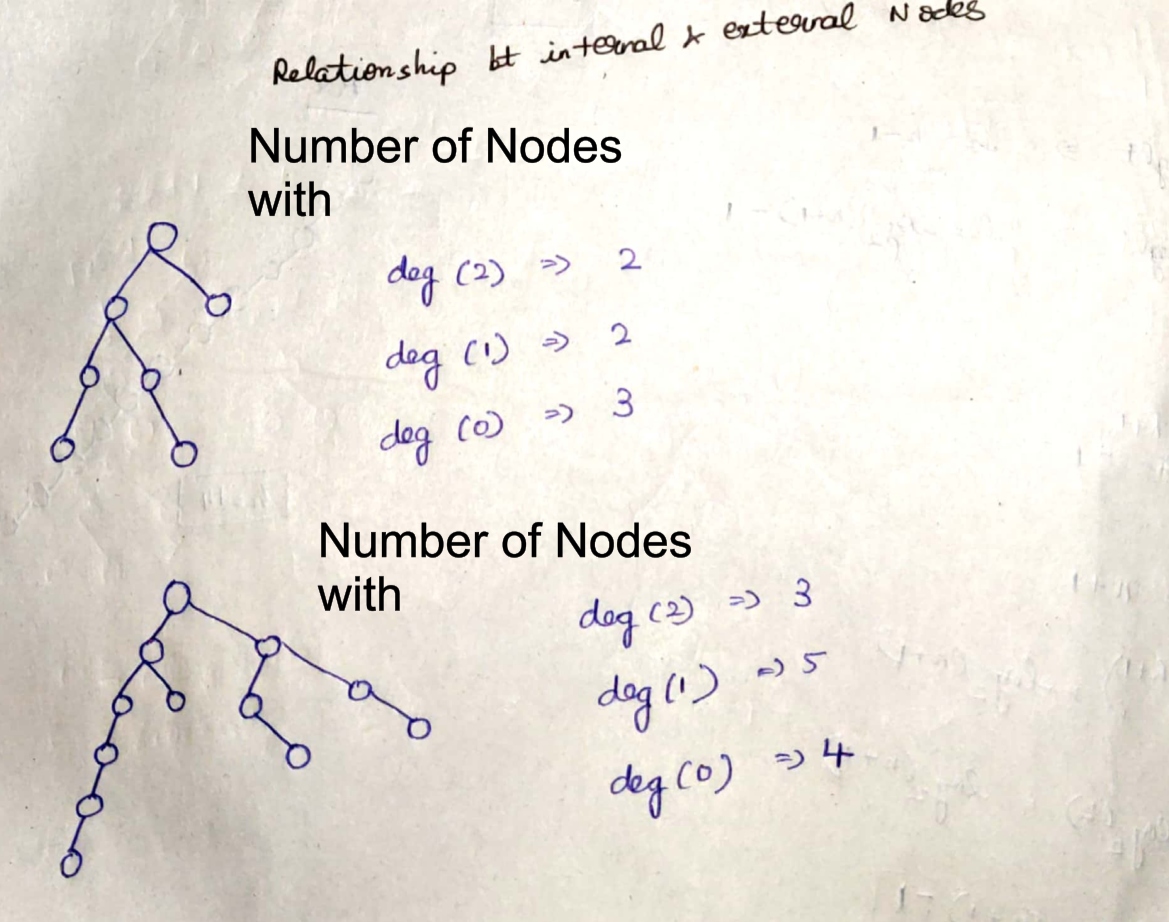 Relationship bt internal & external Nodes
Number of Nodes
with
deg (2) => 2
deg (1) => 2
deg (0) => 3
Number of Nodes
with
deg (2) => 3
deg (1) => 5
deg (0) => 4